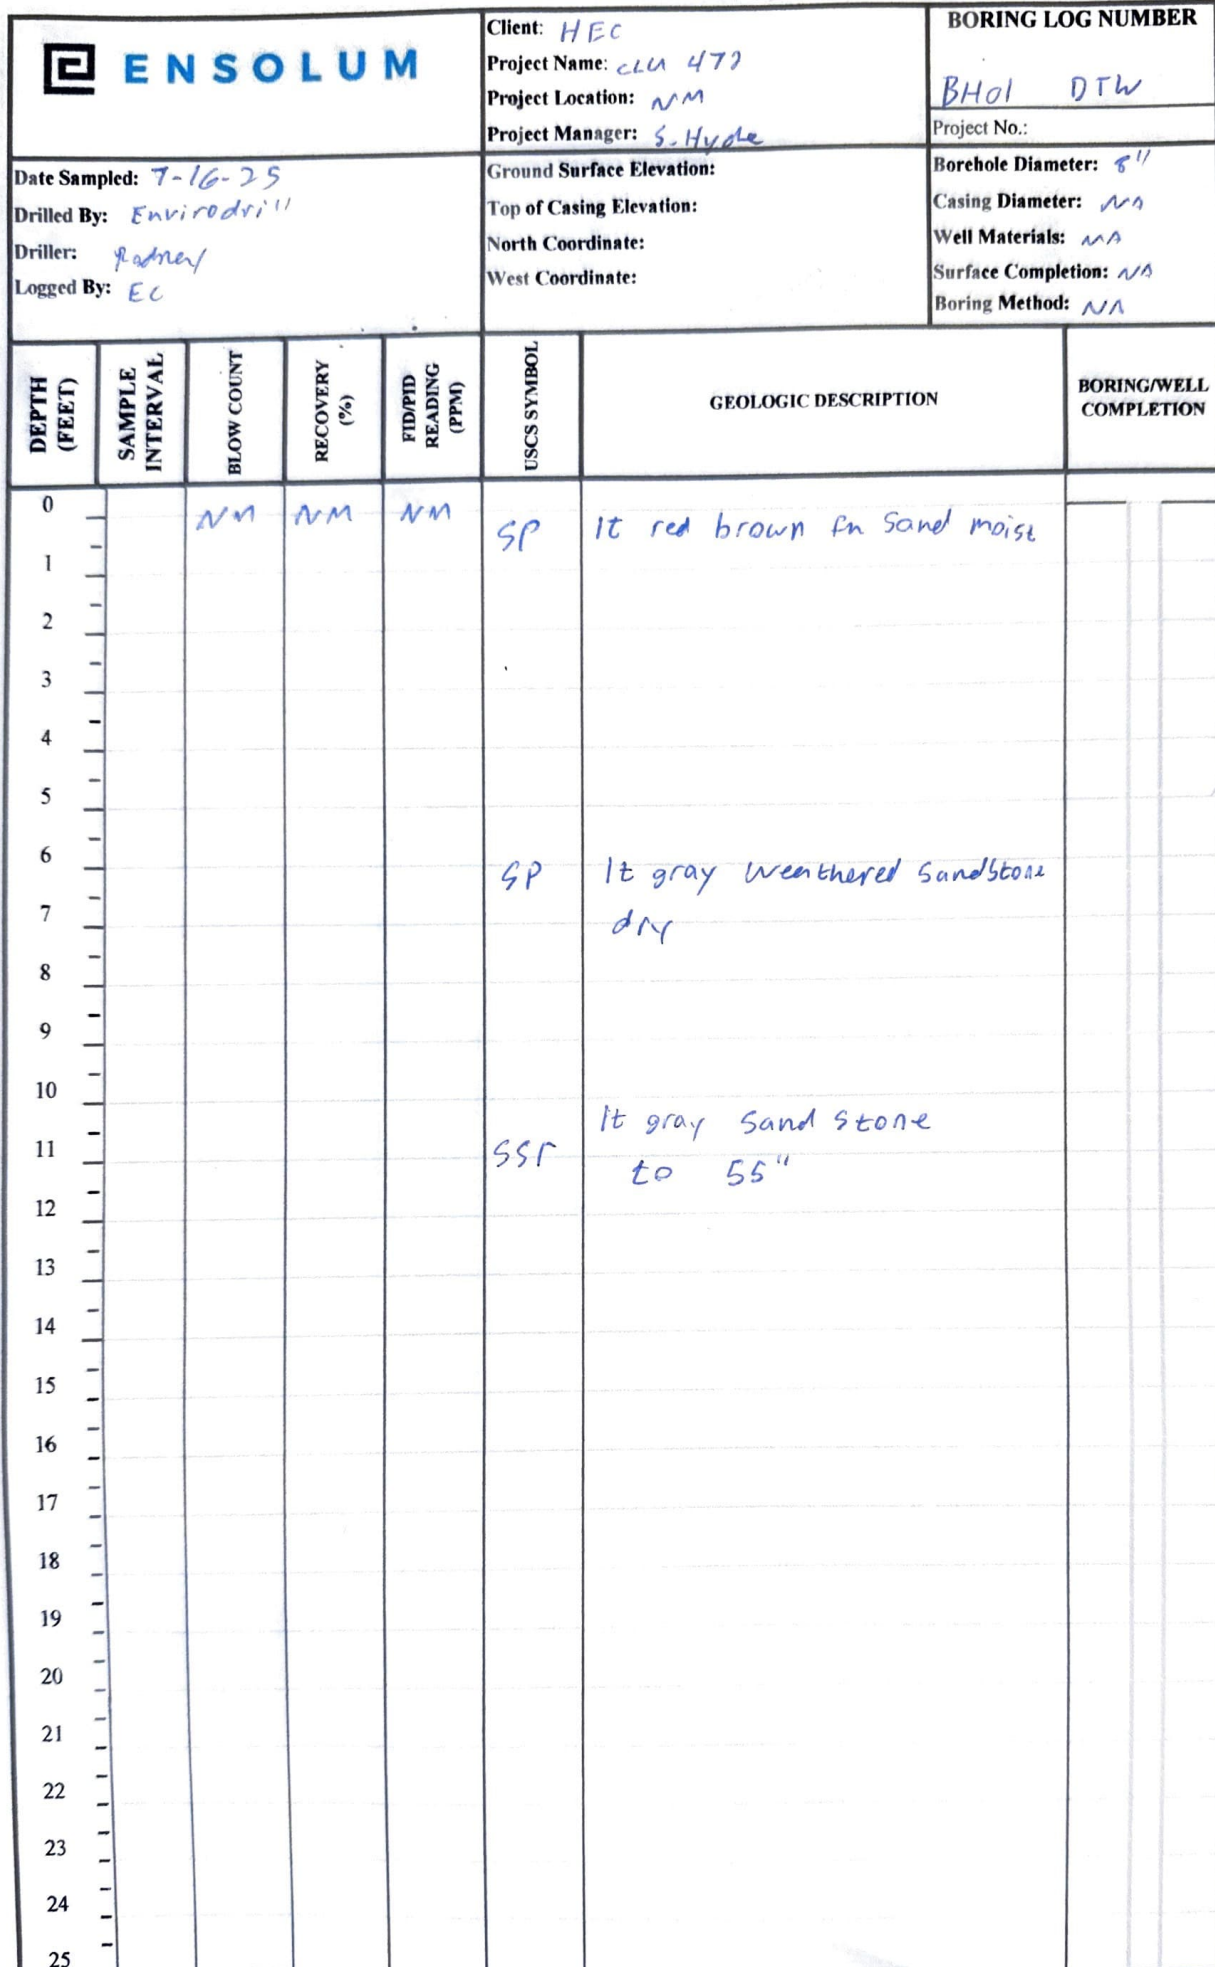 ENSOLUM
Client: HEC
Project Name: CLU 472
Project Location: NM
Project Manager: S. Hyde
BORING LOG NUMBER
BH01 DTW
Project No.:
Date Sampled: 7-16-25
Drilled By: Envirodrill
Driller: Rodney
Logged By: EC
Ground Surface Elevation:
Top of Casing Elevation:
North Coordinate:
West Coordinate:
Borehole Diameter: 8"
Casing Diameter: NA
Well Materials: NA
Surface Completion: NA
Boring Method: NA
DEPTH
(FEET)
SAMPLE
INTERVAL
BLOW COUNT
RECOVERY
(%)
FID/PID
READING
(PPM)
USCS SYMBOL
GEOLOGIC DESCRIPTION
BORING/WELL
COMPLETION
0
NM NM NM
SP lt red brown fn Sand moist
1
2
3
4
5
6
SP lt gray weathered Sandstone
7
dry
8
9
10
lt gray Sand stone
11
to 55"
12
13
14
15
16
17
18
19
20
21
22
23
24
25